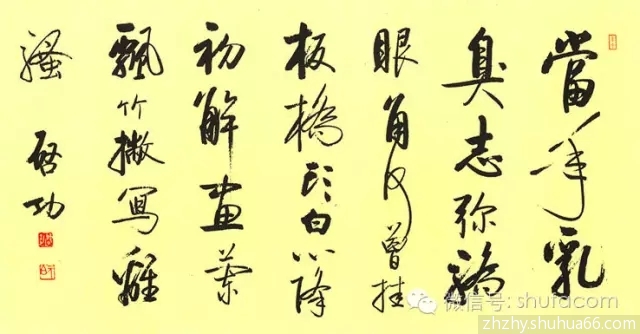 當年乳
臭志弥驕
眼角何曾挂
板橋頭白心降
初解畫蘭
飄竹撇寫離
騷
啓功
微信号: shufacom
zhzhy.shuhua66.com